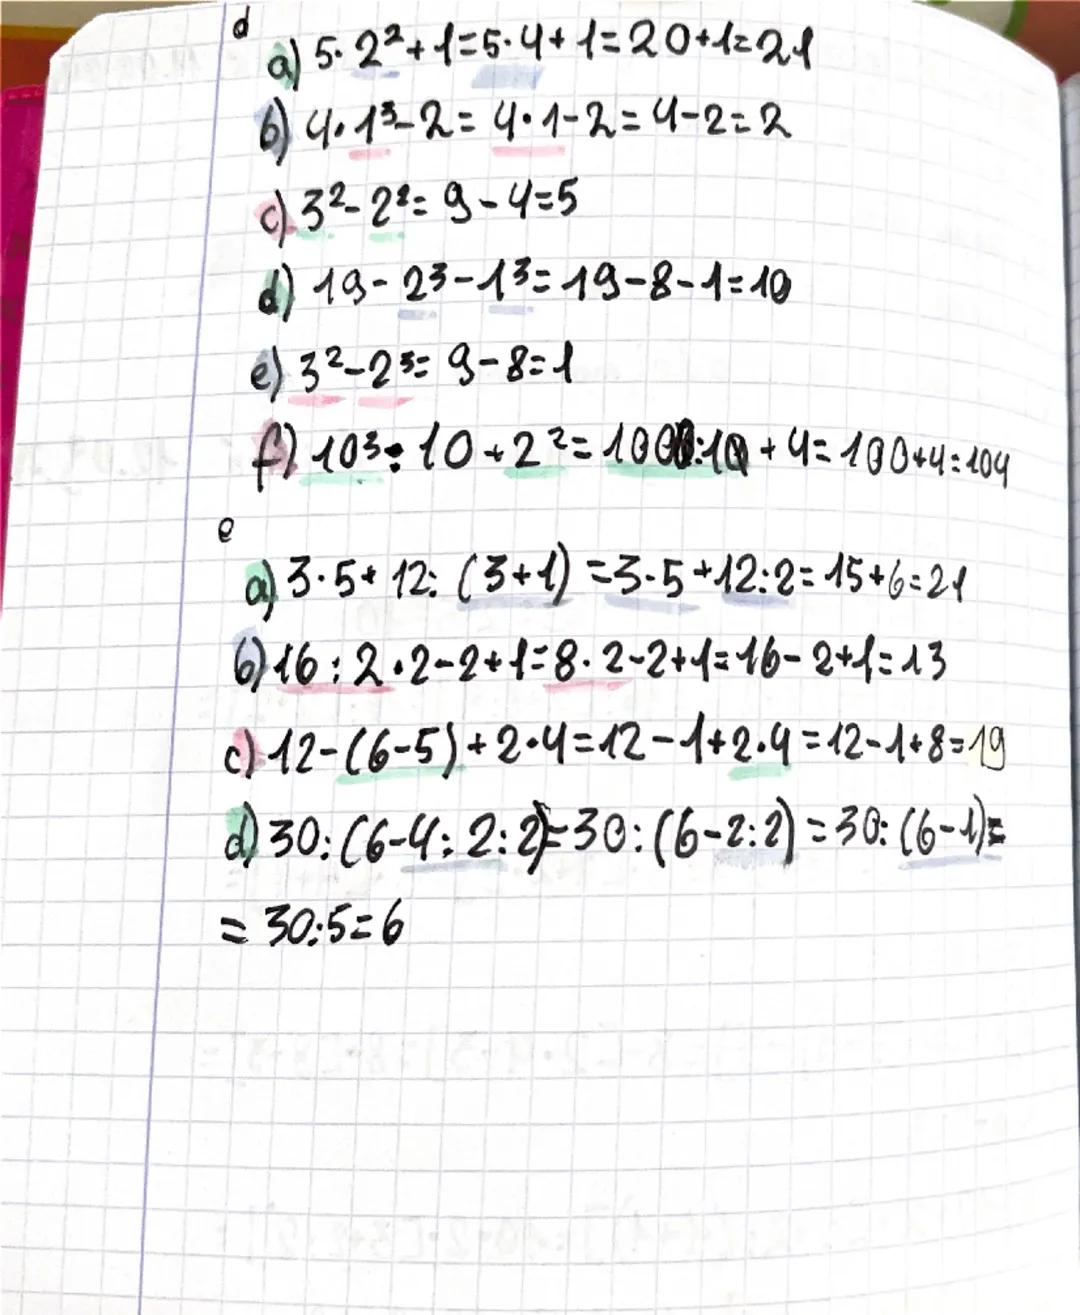 d
a) 5·2²+1=5·4+1=20+1=21
b) 4·1³-2=4·1-2=4-2=2
c) 3²-2²=9-4=5
d) 19-2³-1³=19-8-1=10
e) 3²-2³=9-8=1
f) 10³:10+2²=1000:10+4=100+4=104
e
a) 3·5+12:(3+1)=3·5+12:2=15+6=21
b) 16:2·2-2+1=8·2-2+1=16-2+1=13
c) 12-(6-5)+2·4=12-1+2·4=12-1+8=19
d) 30:(6-4:2:2)=30:(6-2:2)=30:(6-1)=
=30:5=6